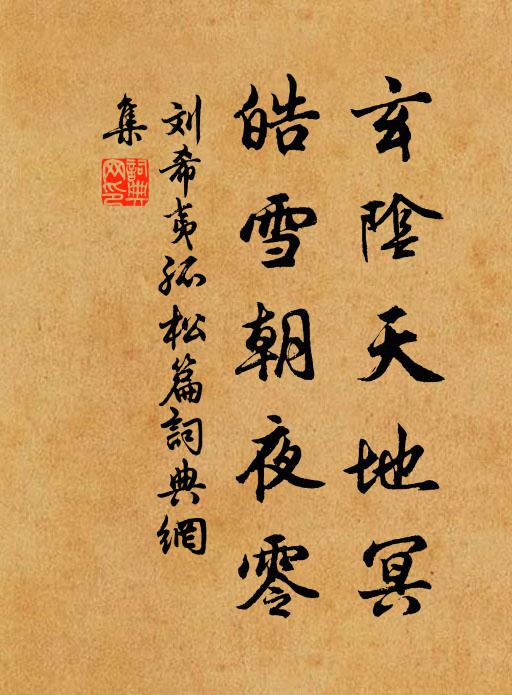 玄陰天地冥
皓雪朝夜零
刘希夷孤松篇詞典網
集
詞典
网印